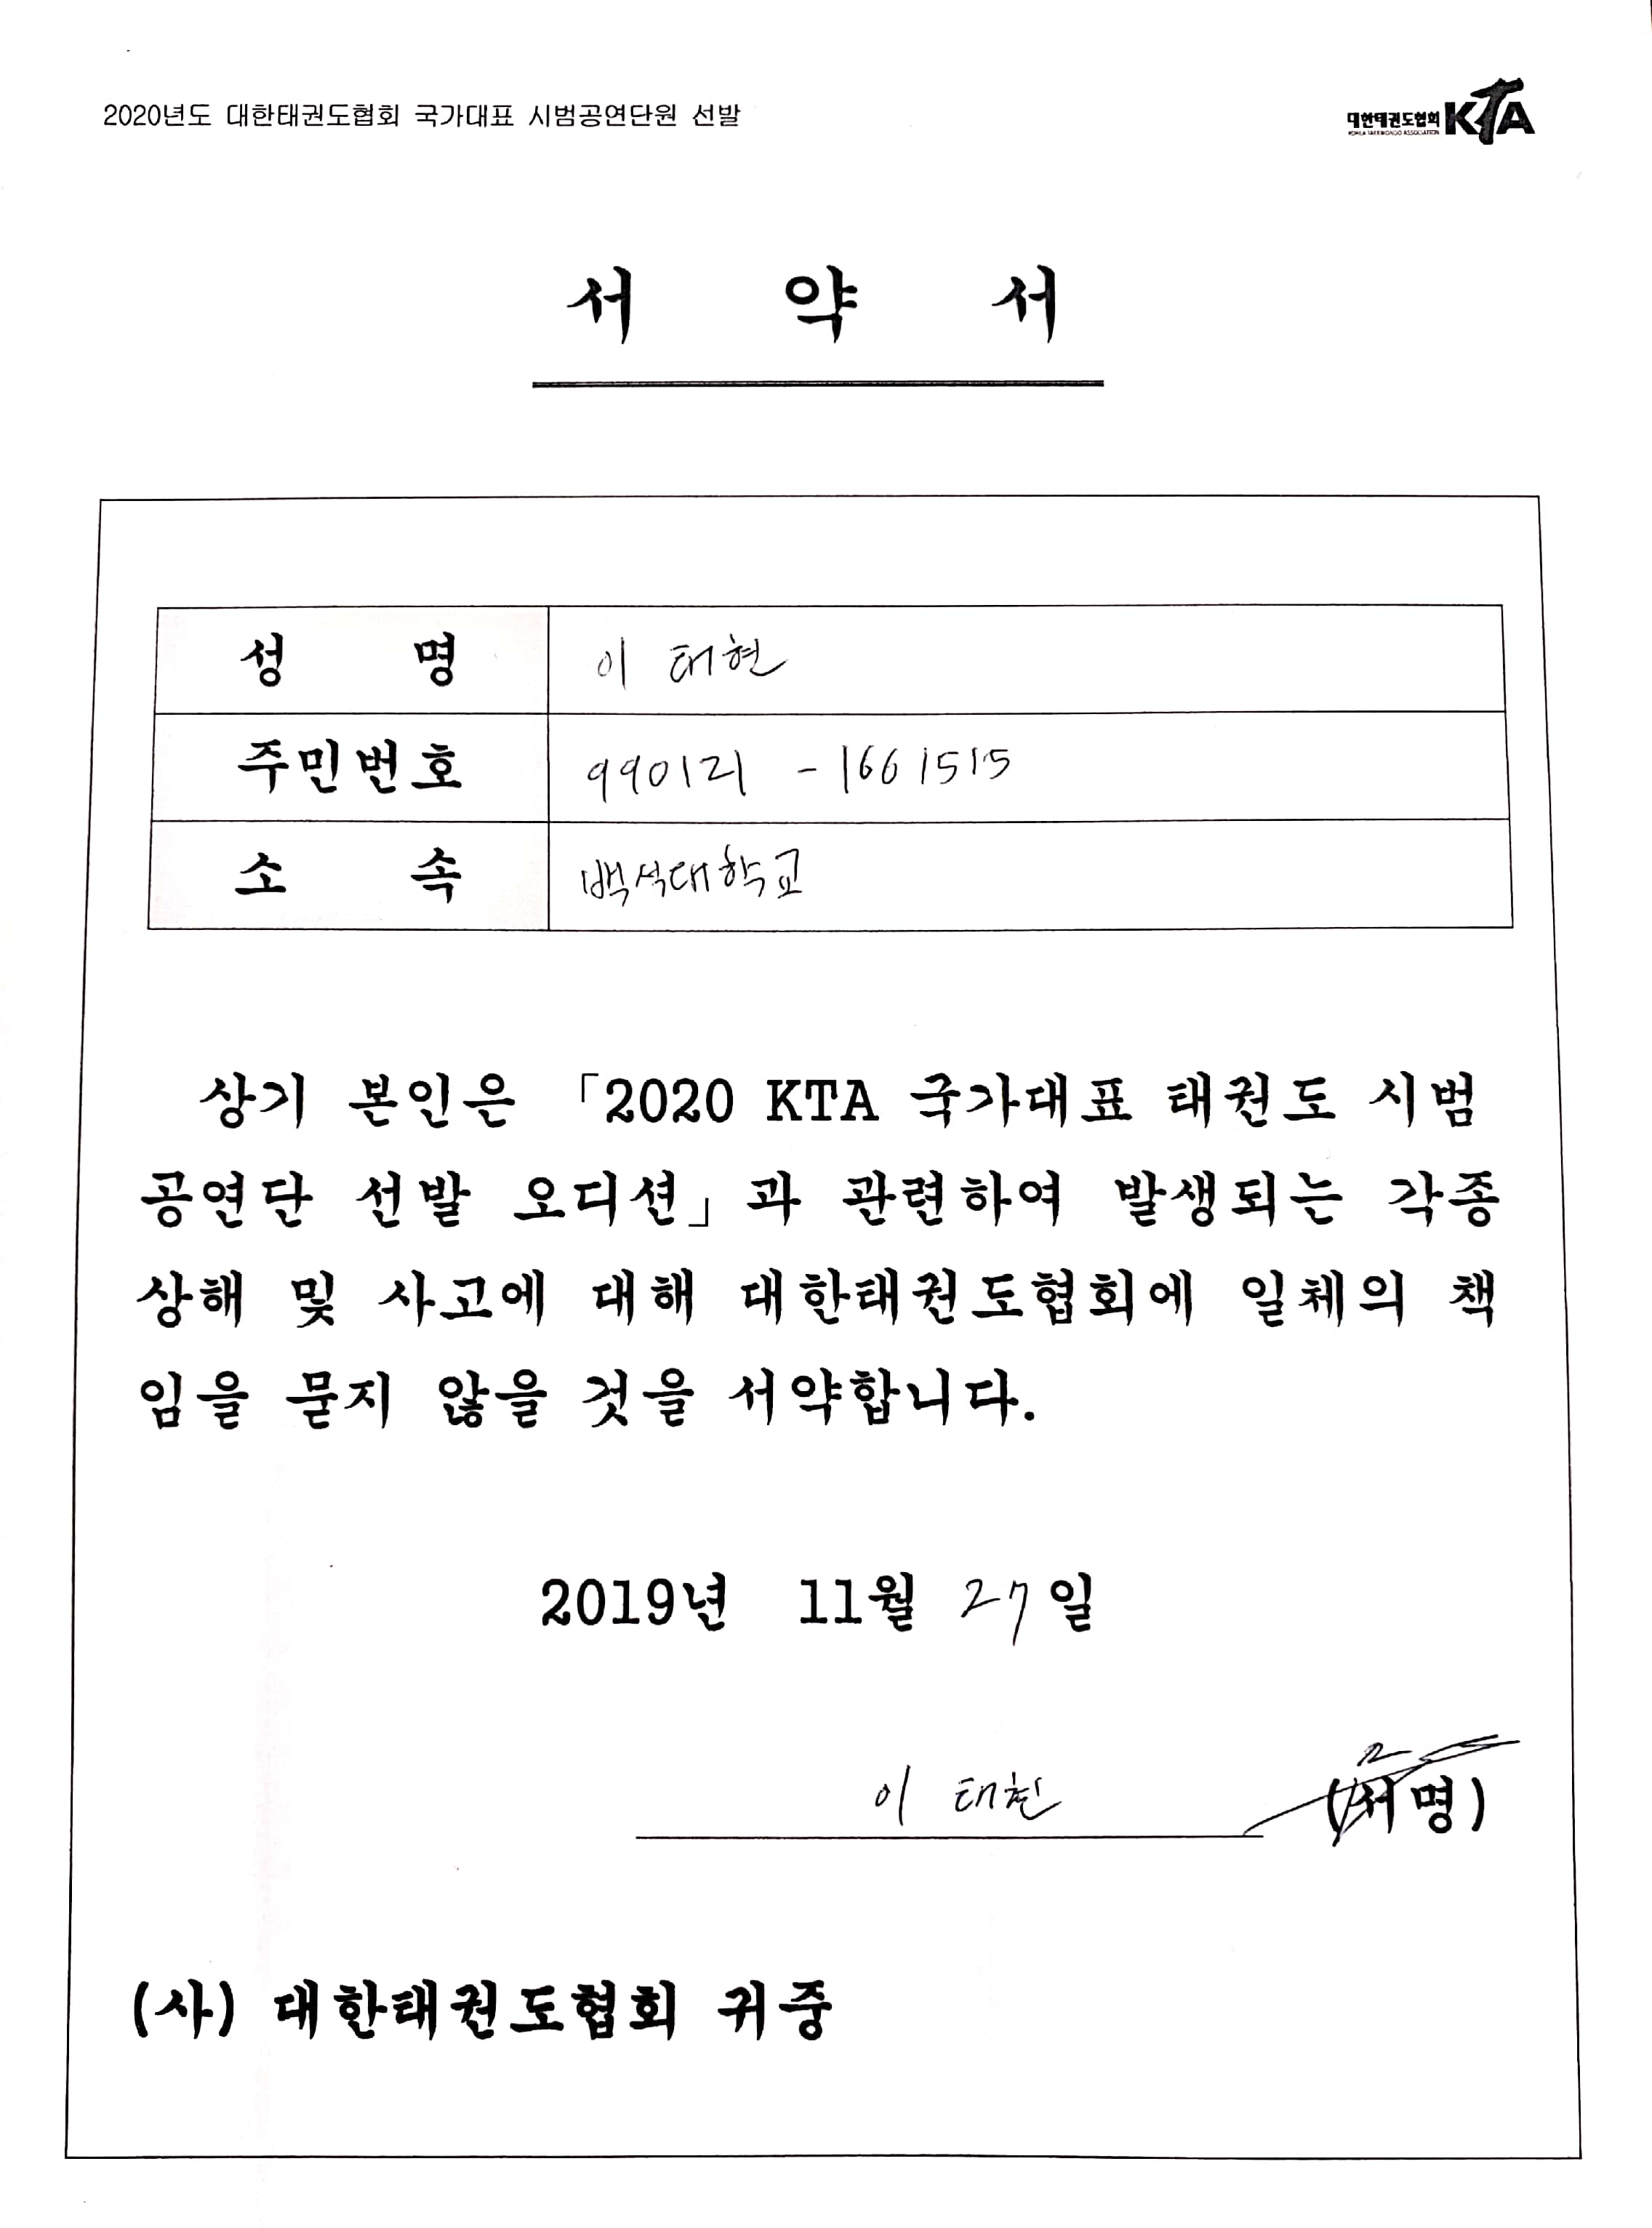 2020년도 대한태권도협회 국가대표 시범공연단원 선발
대한태권도협회 KTA
KOREA TAEKWONDO ASSOCIATION
서 약 서
성 명 이 태현
주민번호 990121 - 1661515
소 속 백석대학교
상기 본인은 「2020 KTA 국가대표 태권도 시범
공연단 선발 오디션」과 관련하여 발생되는 각종
상해 및 사고에 대해 대한태권도협회에 일체의 책
임을 묻지 않을 것을 서약합니다.
2019년 11월 27일
이 태현 (서명)
(사) 대한태권도협회 귀중